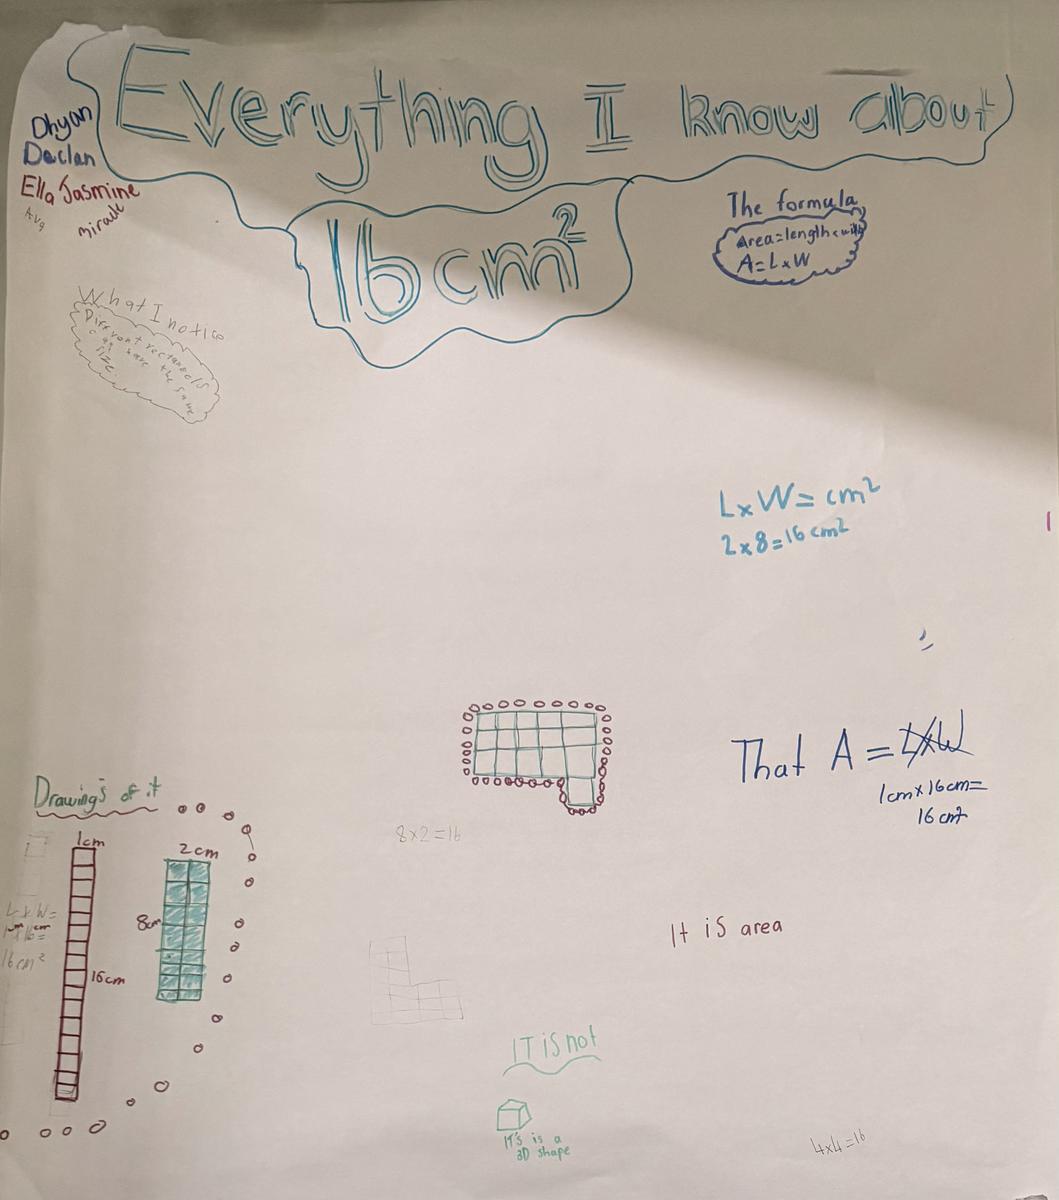 Everything I know about
16 cm²
Dhyan
Declan
Ella Jasmine
Miradt
The formula
Area=length×with
A=L×W
What I notice
Diffront rectannels
can have the same
size.
L×W=cm²
2×8=16cm²
That A = L×W
1cm×16cm=
16cm²
Drawings of it
1cm
2cm
8cm
16cm
L×W=
16cm²
8×2=16
It is area
IT is not
IT's is a
3D shape
4×4=16